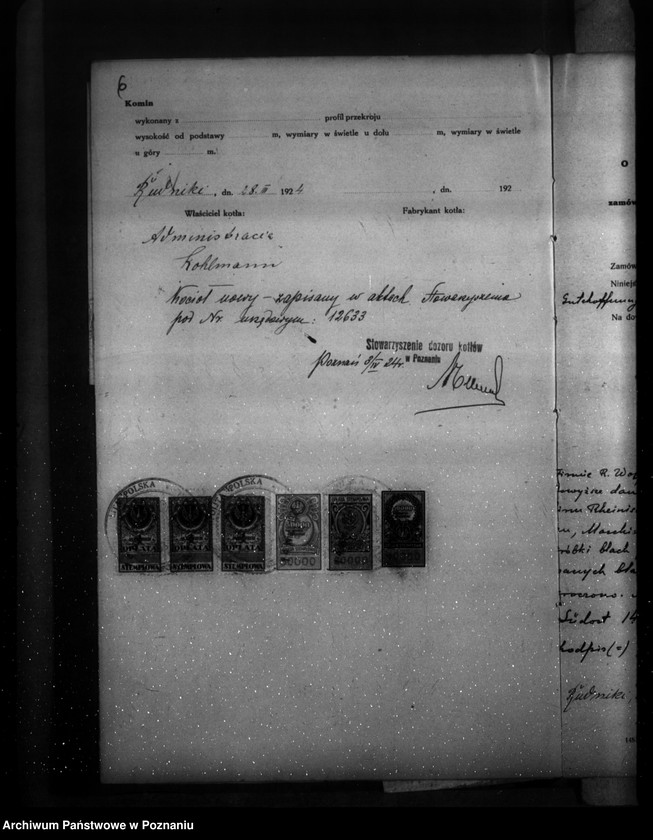 6
Komin
wykonany z profil przekroju
wysokość od podstawy m, wymiary w świetle u dołu m, wymiary w świetle
u góry m.
Rudniki, dn. 28.III 1924 , dn. 192
Właściciel kotła: Fabrykant kotła:
Administracja
Kohlmann
Kocioł nowy – zapisany w aktach Stowarzyszenia
pod Nr. urzędowym: 12633
Stowarzyszenie dozoru kotłów
w Poznaniu
Poznań 8/IV 24r.
POLSKA
POLSKA
OPŁATA
OPŁATA
OPŁATA
STEMPLOWA
STEMPLOWA
STEMPLOWA
O
zamów
Zamów
Niniej
Na do
firmie R. Wo
powyższe dan
Rheinis
blach
Podpis (=)
Rudniki,
Archiwum Państwowe w Poznaniu